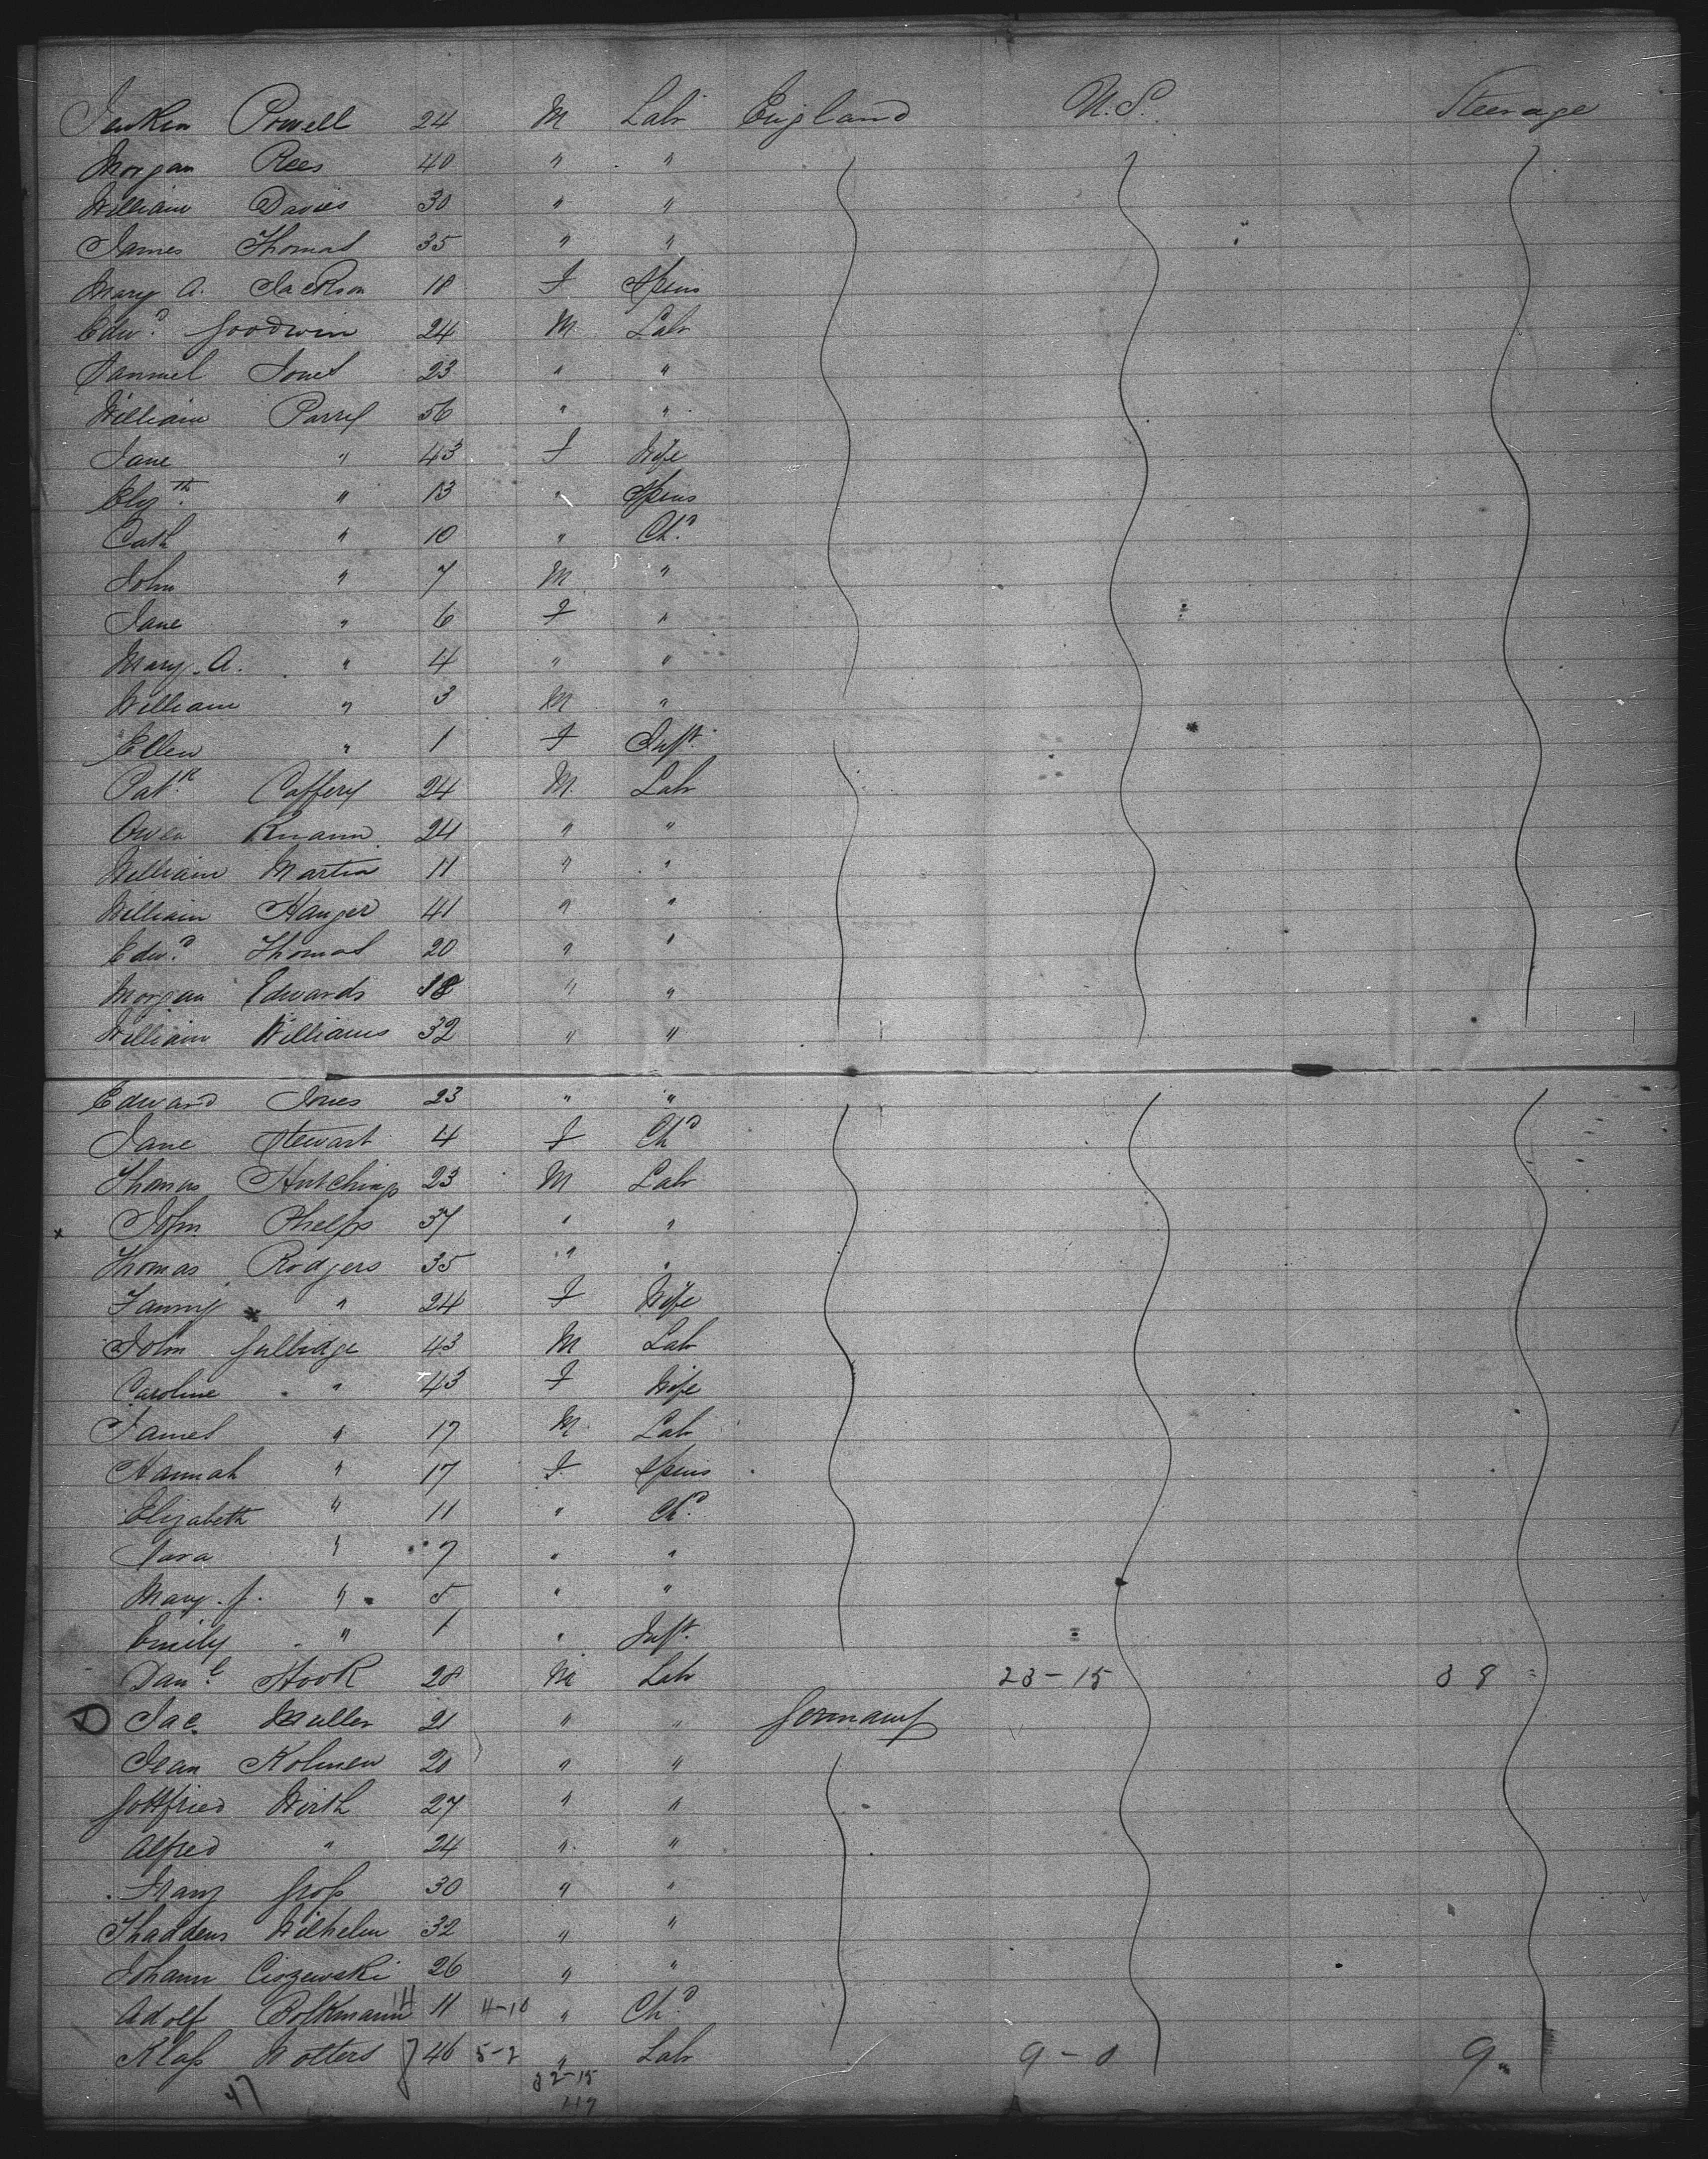 Jenkin Powell 24 M Labr England U.S. Steerage
Morgan Rees 40 " "
William Davies 30 " "
James Thomas 35 " "
Mary A. Jackson 18 F Spins
Edwd. Goodwin 24 M Labr
Samuel Jones 23 " "
William Parry 56 " "
Jane " 43 F Wife
Elizth. " 13 " Spins
Cath " 10 " Chd.
John " 7 M "
Jane " 6 F "
Mary. A. " 4 " "
William " 3 M "
Ellen " 1 F Inft.
Patk. Caffery 24 M Labr
Owen 24 " "
William Martin 11 " "
William Hanger 41 " "
Edwd. Thomas 20 " "
Morgan Edwards 18 " "
William Williams 32 " "
Edward Jones 23 " "
Jane Stewart 4 F Chd
Thomas Hutchings 23 M Labr
x John Phelps 37 " "
Thomas Rodgers 35 " "
Fanny " 24 F Wife
John Gullidge 43 M Labr
Caroline " 43 F Wife
James " 17 M Labr
Hannah " 17 F Spins
Elizabeth " 11 " Chd.
Sara " 7 " "
Mary. J. " 5 " "
Emily " 1 " Inft.
Danl. Hook 28 M Labr 23-15 38
Jac. Muller 21 " " Germany
Jean Kolmen 20 " "
Gottfried Wirth 27 " "
Alfred " 24 " "
Franz Groß 30 " "
Thaddeus Wilhelm 32 " "
Johann Ciszewski 26 " "
Adolf Bolkmann 11 4-10 " Chd.
Klaß Wolters 46 5-2 " Labr 9-0 9
32-15
47 47